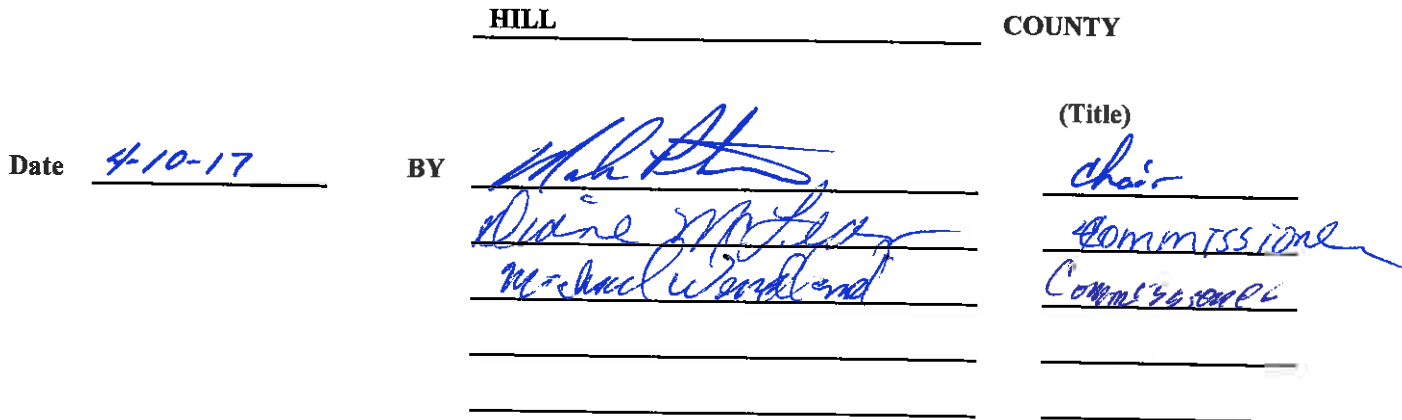 HILL COUNTY
(Title)
Date 4-10-17 BY Chair
Diane Commissioner
Michael Wendland Commissioner